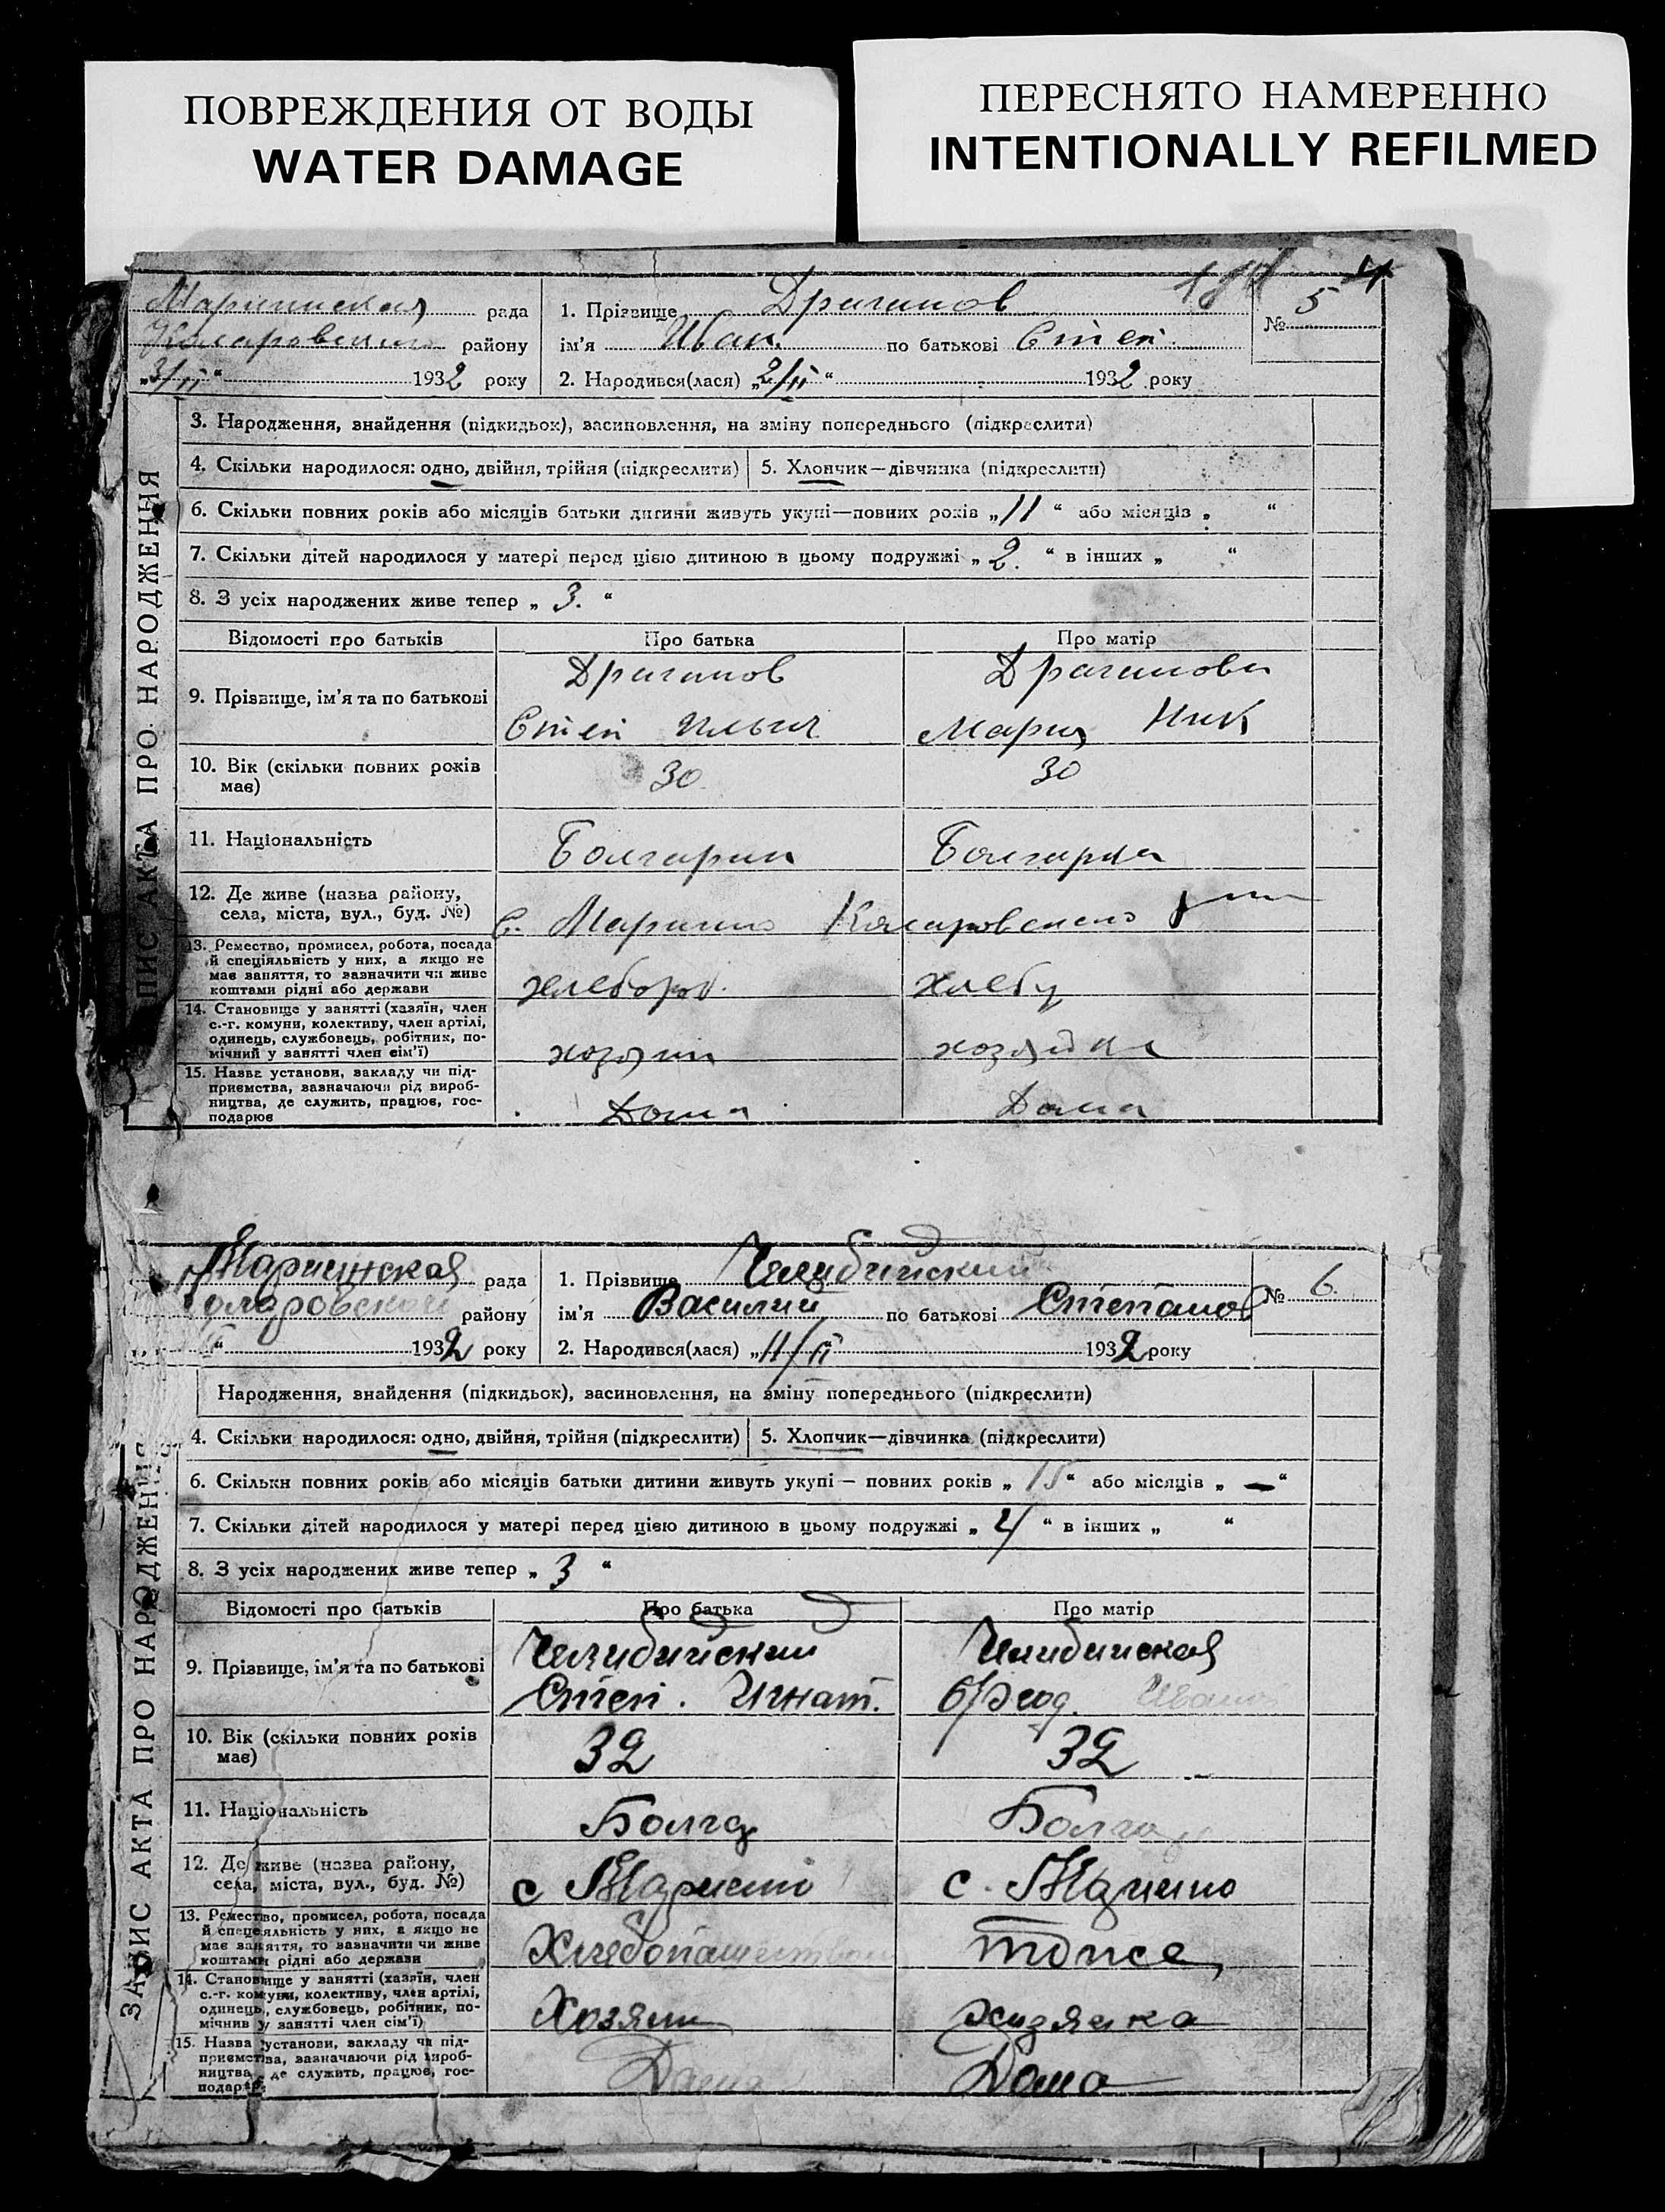 ПОВРЕЖДЕНИЯ ОТ ВОДЫ
WATER DAMAGE
ПЕРЕСНЯТО НАМЕРЕННО
INTENTIONALLY REFILMED
ЗАПИС АКТА ПРО НАРОДЖЕННЯ
Мариинская рада
Коларовского району
„3/II“ 1932 року
1. Прізвище Драганов
ім'я Иван по батькові Степ.
2. Народився(лася) „2/II“ 1932 року
№ 5
3. Народження, знайдення (підкидьок), засиновлення, на зміну попереднього (підкреслити)
4. Скільки народилося: одно, двійня, трійня (підкреслити) 5. Хлопчик—дівчинка (підкреслити)
6. Скільки повних років або місяців батьки дитини живуть укупі—повних років „11“ або місяців „ “
7. Скільки дітей народилося у матері перед цією дитиною в цьому подружжі „2.“ в інших „ “
8. З усіх народжених живе тепер „3.“
Відомості про батьків Про батька Про матір
9. Прізвище, ім'я та по батькові
Драганов Драганова
Степ Ильич Мария Ник
10. Вік (скільки повних років має) 30 30
11. Національність Болгарин Болгарка
12. Де живе (назва району,
села, міста, вул., буд. №)
С. Марино Коларовского
13. Ремество, промисел, робота, посада
й спеціяльність у них, а якщо не
має заняття, то зазначити чи живе
коштами рідні або держави
хлебороб. хлебу
14. Становище у занятті (хазяїн, член
с.-г. комуни, колективу, член артілі,
одинець, службовець, робітник, по-
мічний у занятті член сім'ї)
хозяин хозяйка
15. Назва установи, закладу чи під-
приємства, зазначаючи рід вироб-
ництва, де служить, працює, гос-
подарює
Дома Дома
ЗАПИС АКТА ПРО НАРОДЖЕННЯ
Мариинская рада
Коларовской району
1932 року
1. Прізвище Челибийский
ім'я Василий по батькові Степанов
2. Народився(лася) „11/II“ 1932 року
№ 6.
Народження, знайдення (підкидьок), засиновлення, на зміну попереднього (підкреслити)
4. Скільки народилося: одно, двійня, трійня (підкреслити) 5. Хлопчик—дівчинка (підкреслити)
6. Скільки повних років або місяців батьки дитини живуть укупі — повних років „15“ або місяців „—“
7. Скільки дітей народилося у матері перед цією дитиною в цьому подружжі „4“ в інших „ “
8. З усіх народжених живе тепер „3“
Відомості про батьків Про батька Про матір
9. Прізвище, ім'я та по батькові
Челибийский Челибийская
Степ. Игнат. Иванов
10. Вік (скільки повних років має) 32 32
11. Національність Болга Болга
12. Де живе (назва району,
села, міста, вул., буд. №)
с Марино с. Марино
13. Ремество, промисел, робота, посада
й спецеяльність у них, а якщо не
має заняття, то зазначити чи живе
коштами рідні або держави
Хлебопашество тоже
14. Становище у занятті (хазяїн, член
с.-г. комуни, колективу, член артілі,
одинець, службовець, робітник, по-
мічнив у занятті член сім'ї)
Хозяин Хозяйка
15. Назва установи, закладу чи під-
приємства, зазначаючи рід вироб-
ництва, де служить, працює, гос-
подарює
Дома Дома